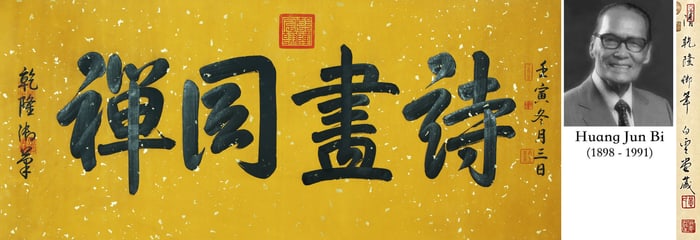 壬寅冬月三日
詩畫同禪
乾隆御筆
Huang Jun Bi
(1898 - 1991)
清乾隆御筆 白雲堂藏